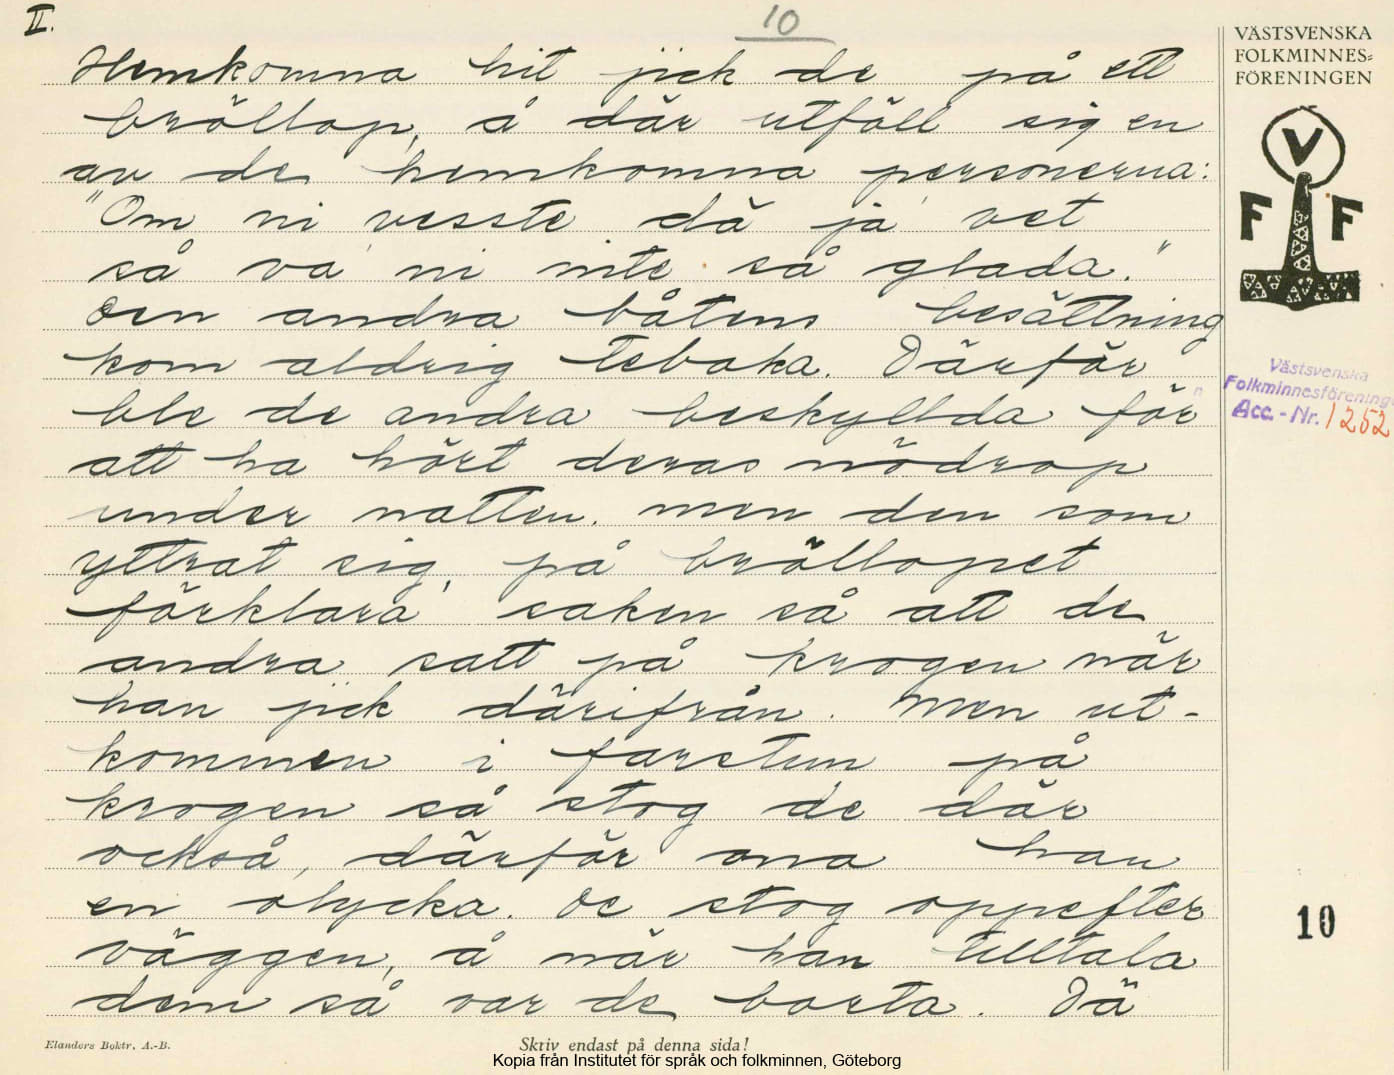 II.
10
Hemkomna hit jick de på ett
bröllop, å där utföll sig en
av de hemkomna personerna:
"Om ni vesste dä ja' vet
så va' ni inte så glada."
Den andra båtens besättning
kom aldrig tebaka. Därför
ble de andra beskyllda för
att ha hört deras nödrop
under natten. men den som
yttrat sig, på bröllopet
förklara' saken så att de
andra satt på krogen när
han jick därifrån. Men ut-
kommen i farstun på
krogen så stog de där
också, därför ana han
en olycka. De stog oppefter
väggen, å när han tilltala
dem så var de borta. Dä
VÄSTSVENSKA
FOLKMINNES=
FÖRENINGEN
V
F F
Västsvenska
Folkminnesförening
Acc. - Nr. 1252
10
Elanders Boktr. A.-B.
Skriv endast på denna sida!
Kopia från Institutet för språk och folkminnen, Göteborg